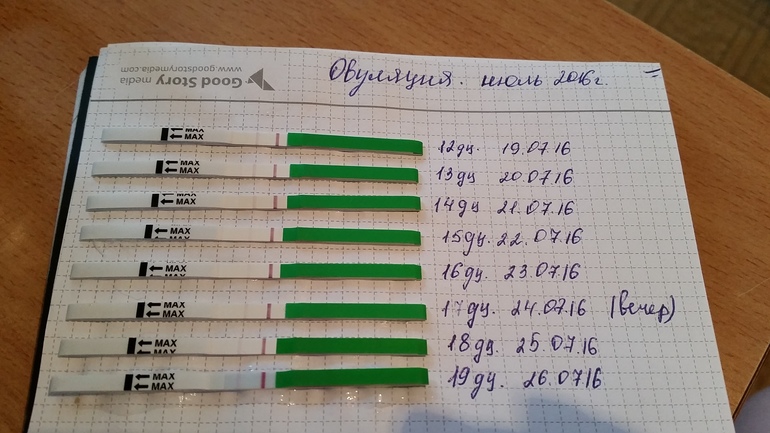 Good Story
media
www.goodstorymedia.com
Овуляция. июль 2016г.
MAX
MAX
12дц. 19.07.16
MAX
MAX
13дц 20.07.16
MAX
MAX
14дц 21.07.16
MAX
15дц. 22.07.16
MAX
16дц. 23.07.16
MAX
MAX
17дц. 24.07.16 (вечер)
MAX
18дц. 25.07.16
MAX
MAX
19дц. 26.07.16